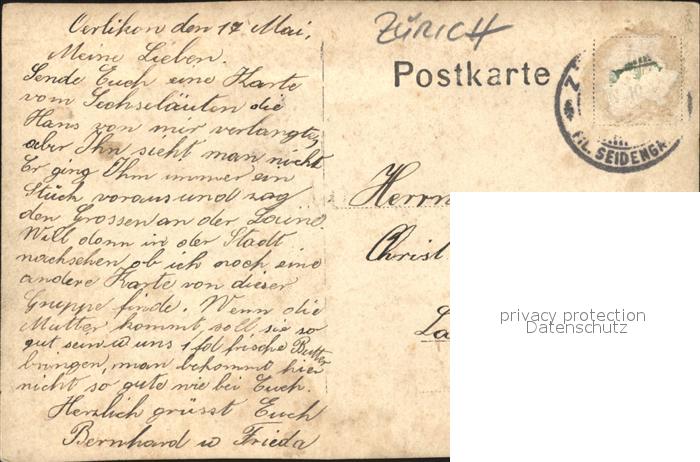 Oerlikon den 17 Mai.
Meine Lieben.
Sende Euch eine Karte
vom Sechseläuten die
Hans von mir verlangte,
aber Ihn sieht man nicht
Er ging Ihm immer ein
Stück voraus und zog
den Grossen an der Leine.
Will dann in der Stadt
nachsehen ob ich noch eine
andere Karte von dieser
Gruppe finde. Wenn die
Mutter kommt, soll sie so
gut sein u uns 1 ℔ frische Butter
bringen, man bekommt hier
nicht so gute wie bei Euch.
Herzlich grüsst Euch
Bernhard u Frieda
ZÜRICH
Postkarte
FIL. SEIDENG
Herrn
Christ
La
privacy protection
Datenschutz